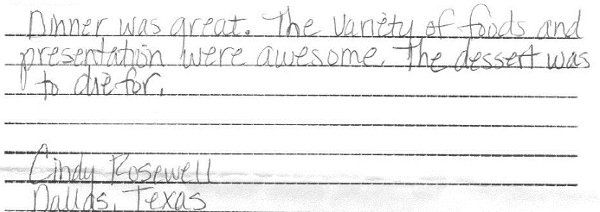 Dinner was great. The variety of foods and
presentation were awesome. The dessert was
to die for.
Cindy Rosewell
Dallas, Texas